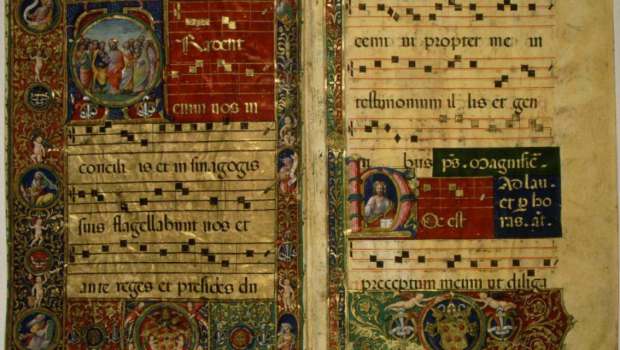 Tradent
enim uos in
concili is et in sinagogis
suis flagellabunt uos et
ante reges et presides du
cemi ni propter me in
testimonium il lis et gen
ti bus ps. Magnific̄.
Ad lau
et p̱ ho
ras. añ.
Hoc est
preceptum meum ut diliga